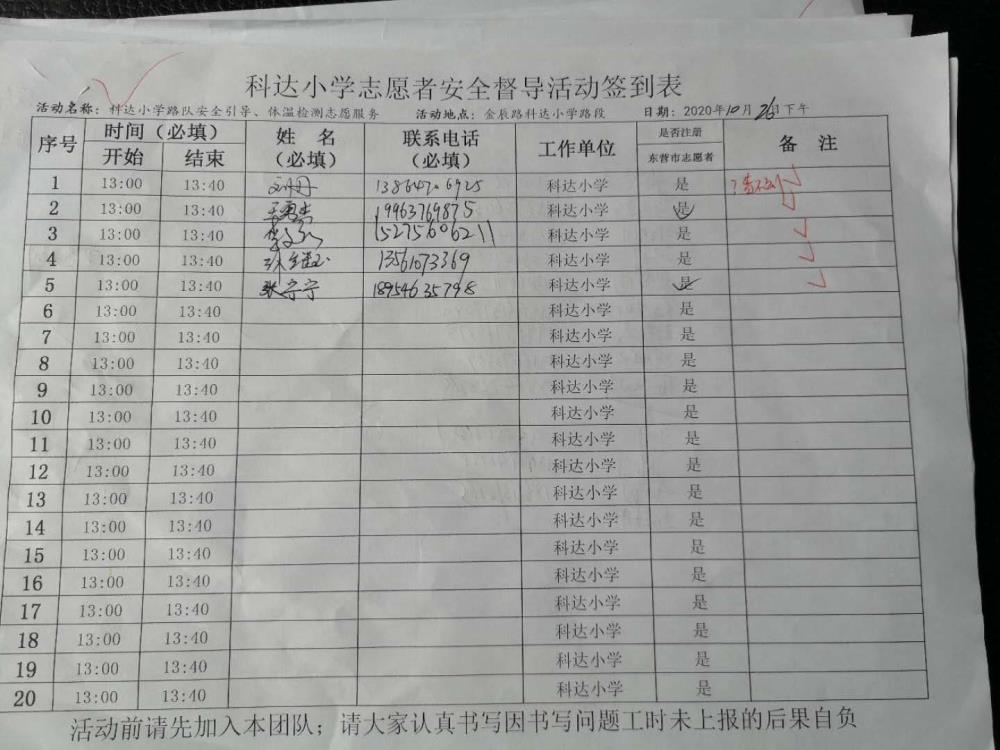 科达小学志愿者安全督导活动签到表
活动名称：科达小学路队安全引导、体温检测志愿服务 活动地点：金辰路科达小学路段 日期：2020年10月26日下午
序号 时间（必填） 姓 名（必填） 联系电话（必填） 工作单位 是否注册 备 注
开始 结束 东营市志愿者
1 13:00 13:40 刘丹 科达小学 是
2 13:00 13:40 19963769875 科达小学 是
3 13:00 13:40 15275606211 科达小学 是
4 13:00 13:40 13561073369 科达小学 是
5 13:00 13:40 张宁宁 18954635798 科达小学 是
6 13:00 13:40 科达小学 是
7 13:00 13:40 科达小学 是
8 13:00 13:40 科达小学 是
9 13:00 13:40 科达小学 是
10 13:00 13:40 科达小学 是
11 13:00 13:40 科达小学 是
12 13:00 13:40 科达小学 是
13 13:00 13:40 科达小学 是
14 13:00 13:40 科达小学 是
15 13:00 13:40 科达小学 是
16 13:00 13:40 科达小学 是
17 13:00 13:40 科达小学 是
18 13:00 13:40 科达小学 是
19 13:00 13:40 科达小学 是
20 13:00 13:40 科达小学 是
活动前请先加入本团队；请大家认真书写因书写问题工时未上报的后果自负